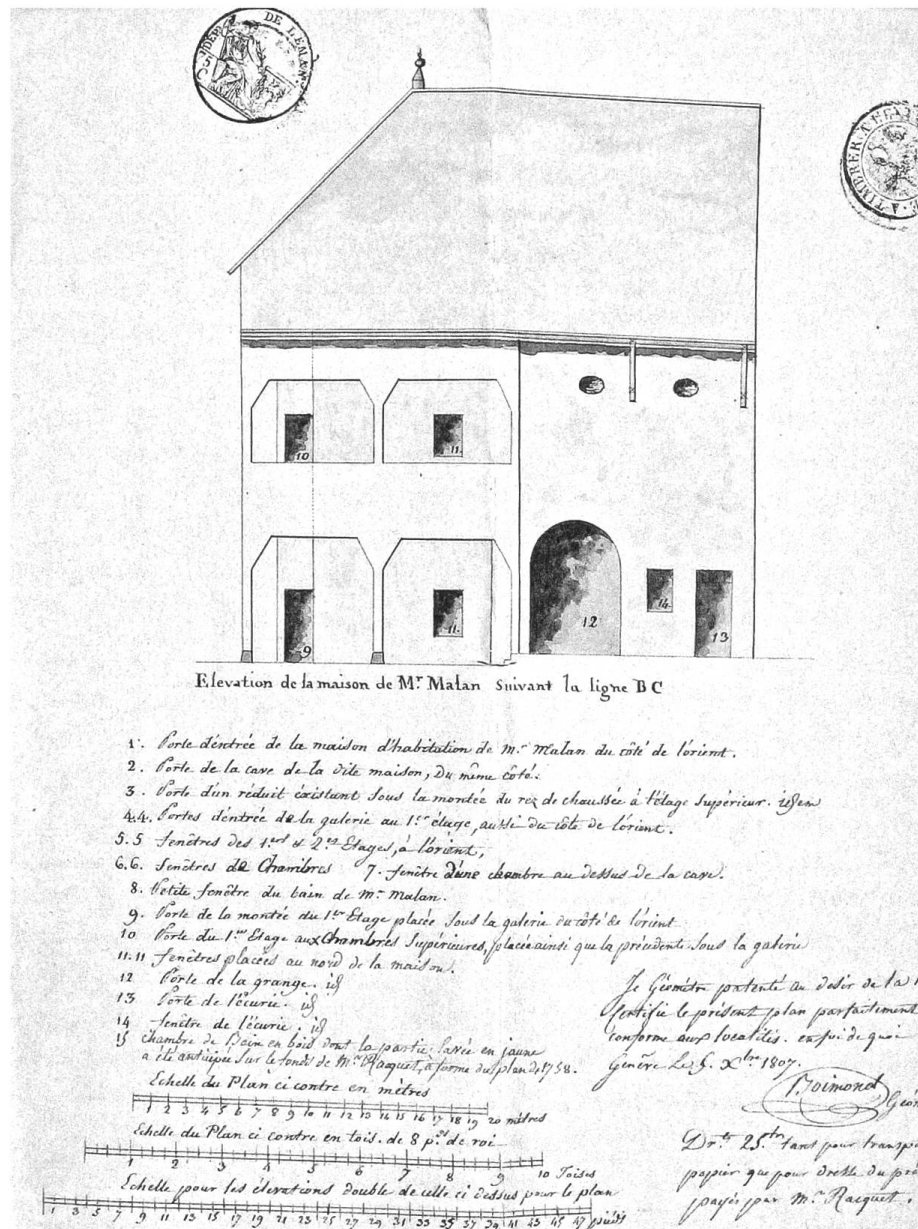 DE LEMAN
A TIMBRER A L'EX
10
11.
12
14
13
9
11.
Elevation de la maison de Mr. Malan Suivant la ligne B C
1. Porte d'entrée de la maison d'habitation de mr. Malan du côté de l'orient.
2. Porte de la cave de la dite maison, du même côté.
3. Porte d'un réduit éxistant sous la montée du rez de chaussée à l'étage supérieur. idem
4.4. Portes d'entrée de la galerie au 1er étage, aussi du côté de l'orient.
5.5 fenêtres des 1ers & 2es Etages, à l'orient,
6.6. fenêtres de Chambres 7. fenêtre d'une chambre au dessus de la cave.
8. Petite fenêtre du bain de mr. Malan.
9. Porte de la montée du 1er Etage placée sous la galerie du côté de l'orient
10 Porte du 1er Etage aux Chambres Supérieures, placée ainsi que la précédente sous la galerie
11.11 fenêtres placées au nord de la maison.
12 Porte de la grange. id
13 Porte de l'écurie. id
14 fenêtre de l'écurie. id
15 chambre de Bain en bois dont la partie lavée en jaune
a été anticipée sur le fonds de Mr. Racquet, a forme du plan de 1758.
Echelle du Plan ci contre en mètres
1 2 3 4 5 6 7 8 9 10 11 12 13 14 15 16 17 18 19 20 mètres
Echelle du Plan ci contre en tois. de 8 pds de roi
1 2 3 4 5 6 7 8 9 10 Toises
Echelle pour les élevations double de celle ci dessus pour le plan
1 3 5 7 9 11 13 15 17 19 21 23 25 27 29 31 33 35 37 39 41 43 45 47 pieds
Je Géomètre patenté au desir de la
Certifie le présent plan parfaitement
conforme aux localités. en foi de quoi
Genève Le 5. Xbre 1807.
Géom
Drts 25 tant pour transpo
papier que pour dresse du pré
payés par Mr. Racquet.